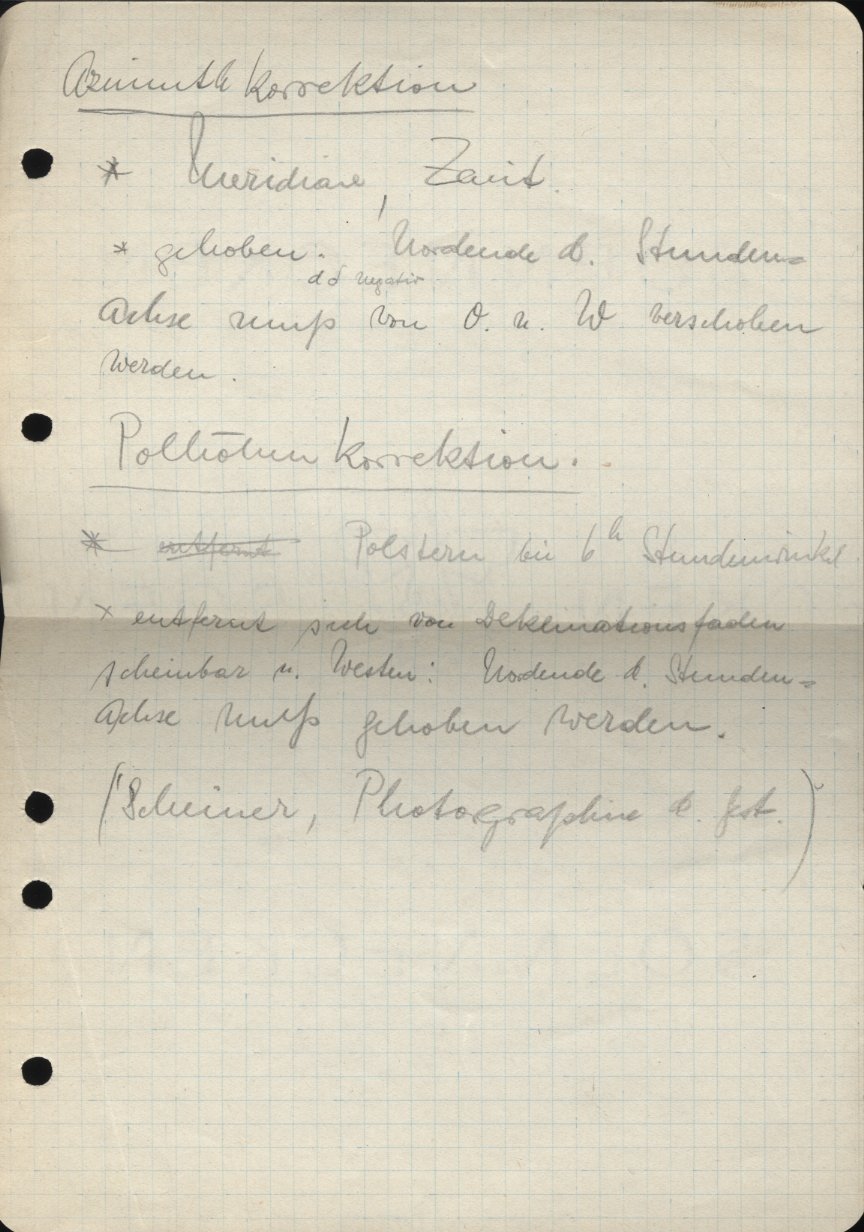 Azimuth korrektion
* Meridiane, Zenit.
* gehoben. Nordende d. Stunden=
dδ negativ
Achse muß von O. n. W verschoben
werden.
Polhöhen korrektion.
* entfernt Polstern bei 6h Stundenwinkel
× entfernt sich von Deklinationsfaden
scheinbar n. Westen: Nordende d. Stunden=
Achse muß gehoben werden.
(Scheiner, Photographie d. Gest.)